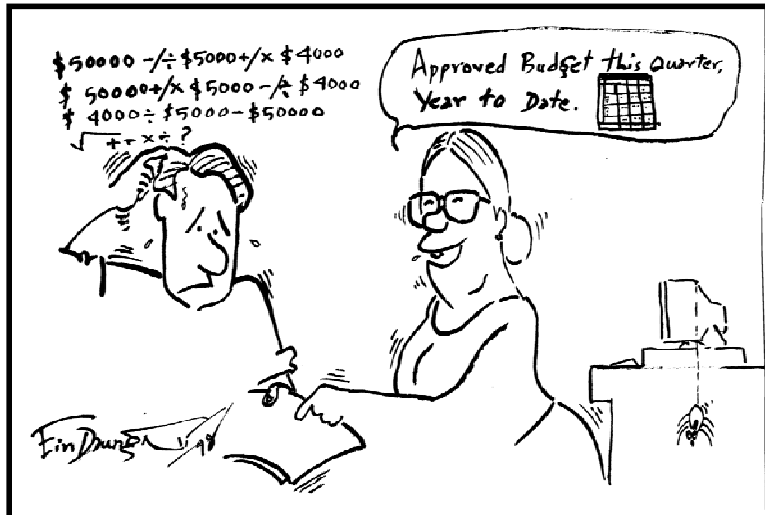 $50000 -/÷ $5000+/x $4000
$ 50000+/x $5000 -/÷ $4000
$ 4000 ÷ $5000 - $50000
√ + - x ÷ ?
Approved Budget this Quarter,
Year to Date.